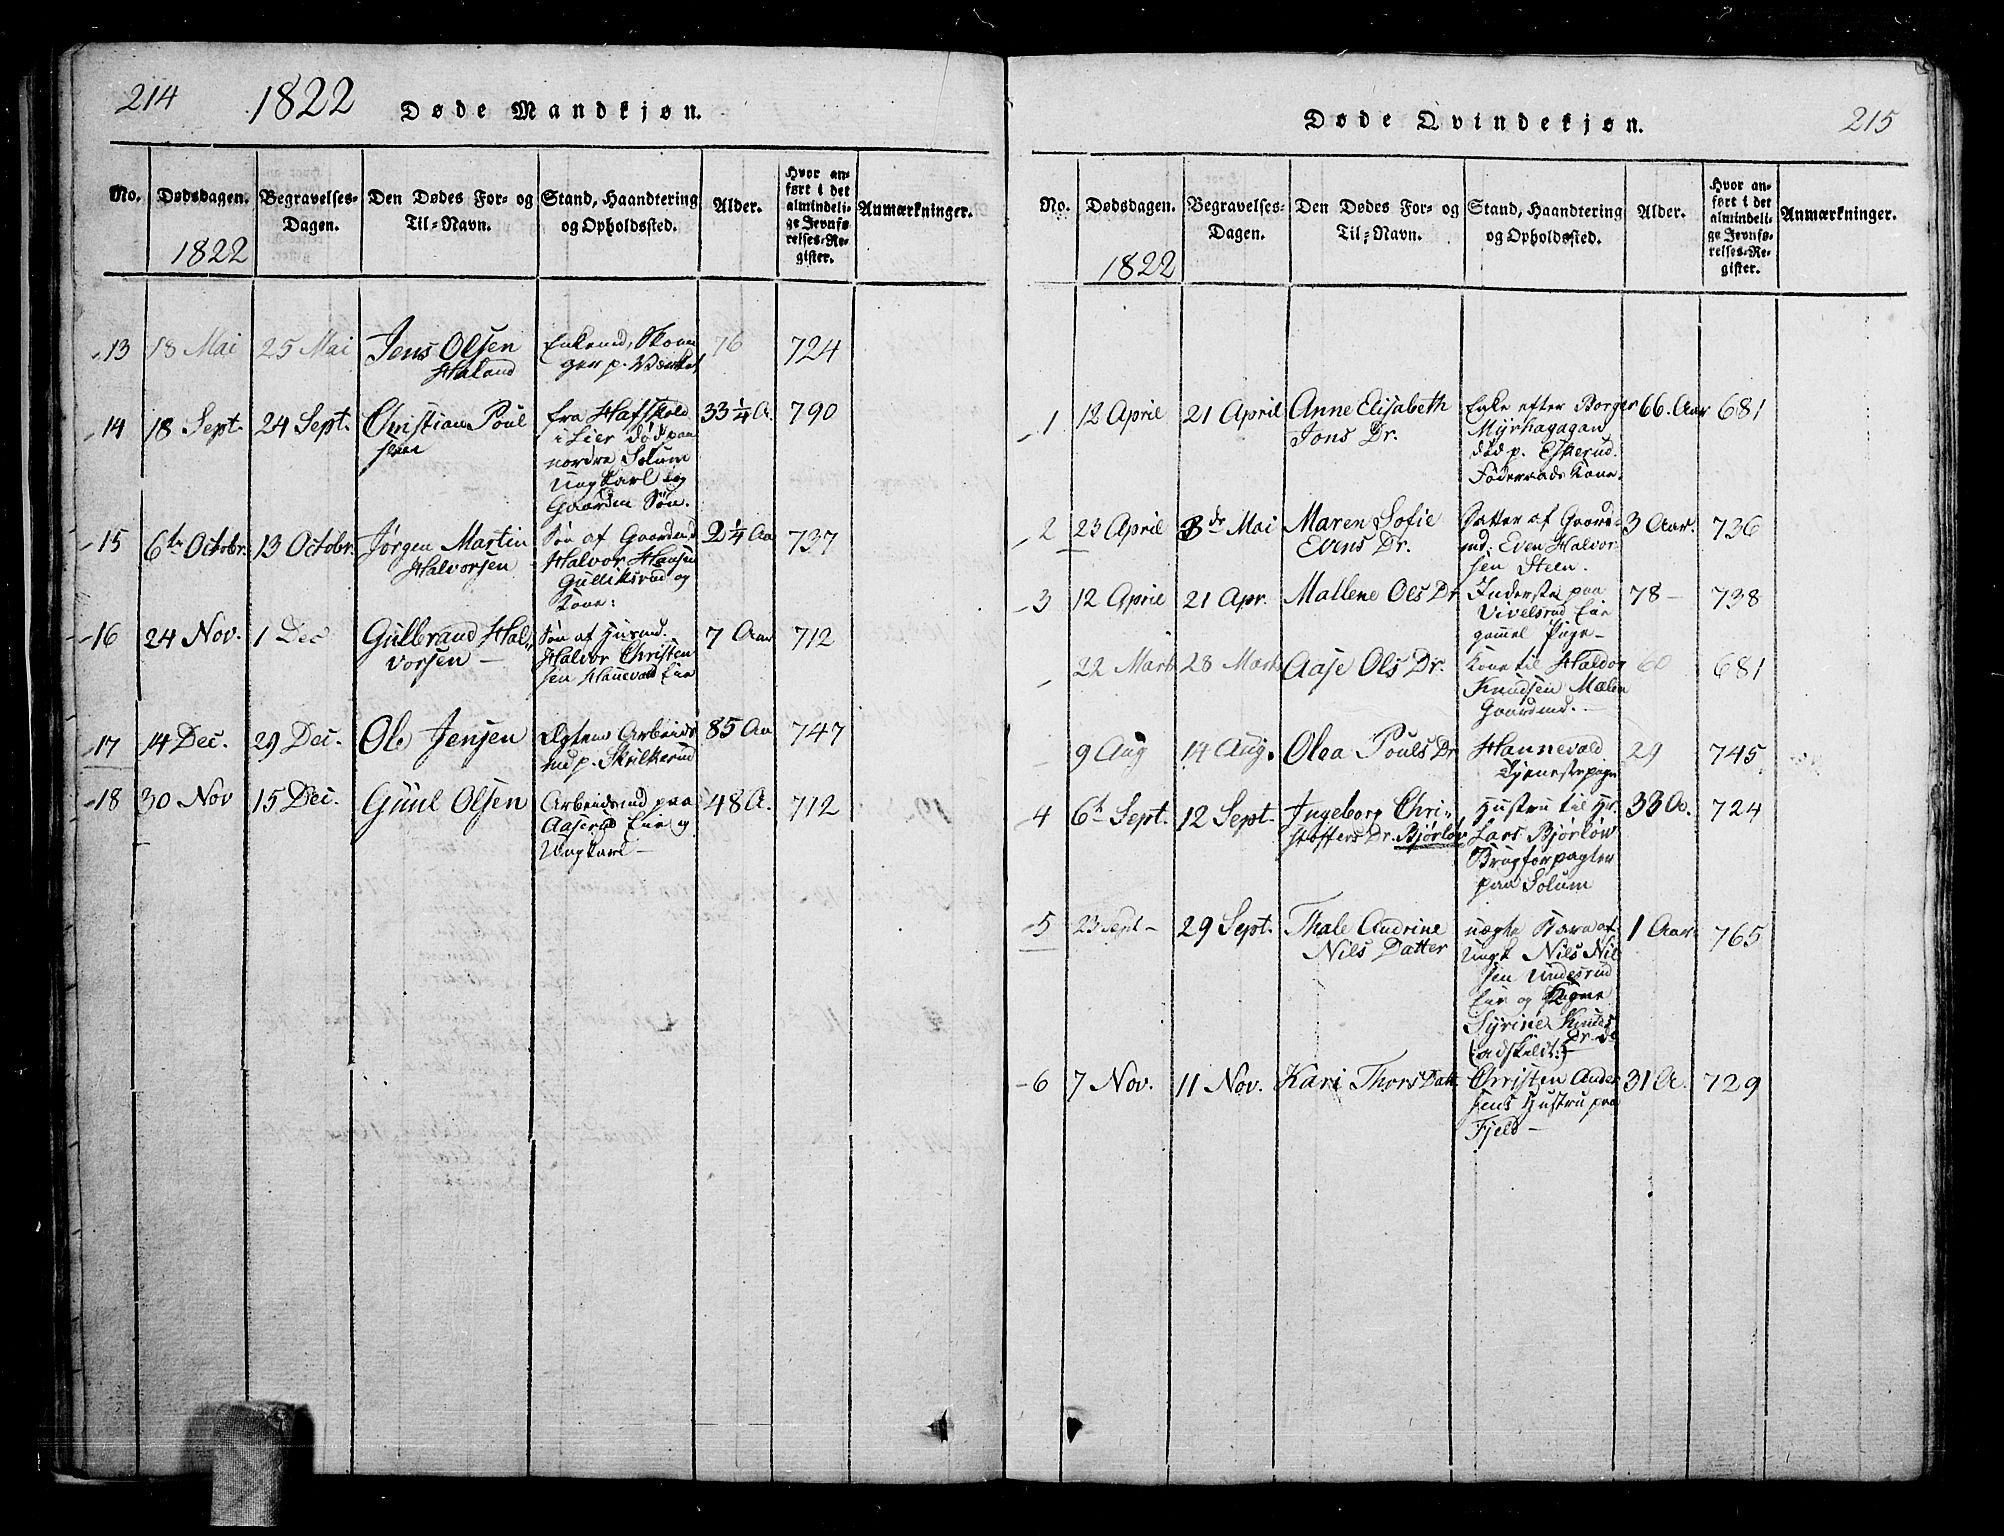 214
1822
Døde Mandkjøn.
No.
Dødsdagen.
1822
Begravelses-
Dagen.
Den Dødes For- og
Til-Navn.
Stand, Haandtering
og Opholdssted.
Alder.
Hvor an-
ført i det
almindeli-
ge Jevnfø-
relses-Re-
gister.
Anmærkninger.
13
18 Mai
25 Mai
Jens Olsen
Haland
76
724
14
18 Sept.
24 Sept.
Christian Poul
sen
fra Hafskold
i Lier død paa
nordre Solum
Ungkarl og
Gaardm Søn.
33 1/4 A.
790
15
6te Octobr.
13 Octobr.
Jørgen Martin
Halvorsen
Søn af Gaardmd
Halvor Hansen
Gulliksrud og
Kone:
2 1/4 Aa
737
16
24 Nov.
1 Dec
Gulbrand Hal,,
vorsen —
Søn af Husmd.
Halvor Christen
sen Hanevald Eie
7 Aar
712
17
14 Dec.
29 Dec.
Ole Jensen
Arbeids
md p. Skilkerud
85 Aa
747
18
30 Nov
15 Dec.
Guul Olsen
Arbeidsmd paa
Aaserud Eie og
Ungkarl —
48 A.
712
215
Døde Qvindekjøn.
No.
Dødsdagen.
1822
Begravelses-
Dagen.
Den Dødes For- og
Til-Navn.
Stand, Haandtering
og Opholdssted.
Alder.
Hvor an-
ført i det
almindeli-
ge Jevnfø-
relses-Re-
gister.
Anmærkninger.
1
12 April
21 April
Anne Elisabeth
Jons Dr.
Enke efter Borger
Myrhagagan
død p. Eskerud.
Føderaads Kone.
66. Aar
681
2
23 April
3dr Mai
Maren Sofie
Evens Dr.
Datter af Gaard-
md: Even Halvor
sen Steen.
3 Aar.
736
3
12 April
21 Apr.
Mallene Ols Dr
Inderste paa
Vivelsrud Eie
gammel Pige —
78 —
738
22 Marts
28 Marts
Aase Ols Dr.
Kone til Haldor
Knudsen Mælen
Gaardmd.
60
681
9 Aug
14 Aug.
Olea Pouls Dr
Hannevald
Tjenestepige
29
745
4
6te Sept.
12 Sept.
Ingeborg Chri,,
stoffers Dr. Bjørløv
Hustru til Hr.
Lars Bjørløv
Brugforpagter
paa Solum
33 Aa.
724
5
23 Sept —
29 Sept.
Thale Andrine
Nils Datter
uægte Barn af
Ungk Nils Nil
sen Undesrud
Eie og Pigene
Syrine Knuds
Dr
(adskeldt:)
1 Aar
765
6
7 Nov.
11 Nov.
Kari Thors Datt
Christen Ander
sens Hustru paa
Fjeld —
31 A.
729